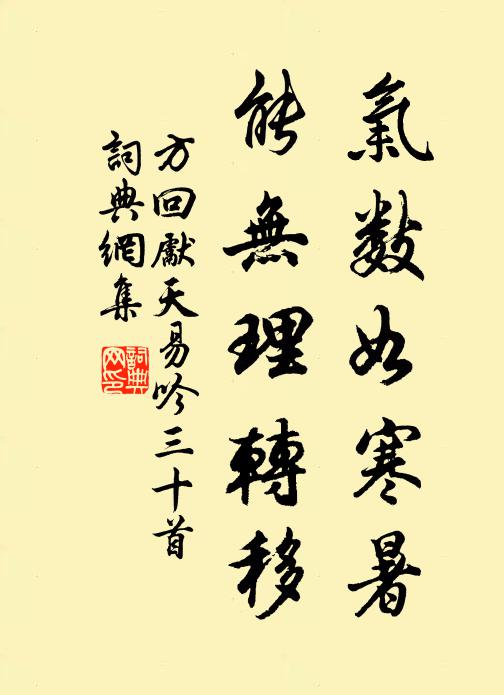 氣數如寒暑
能無理轉移
方回獻天易吟三十首
詞典網集
詞典網印